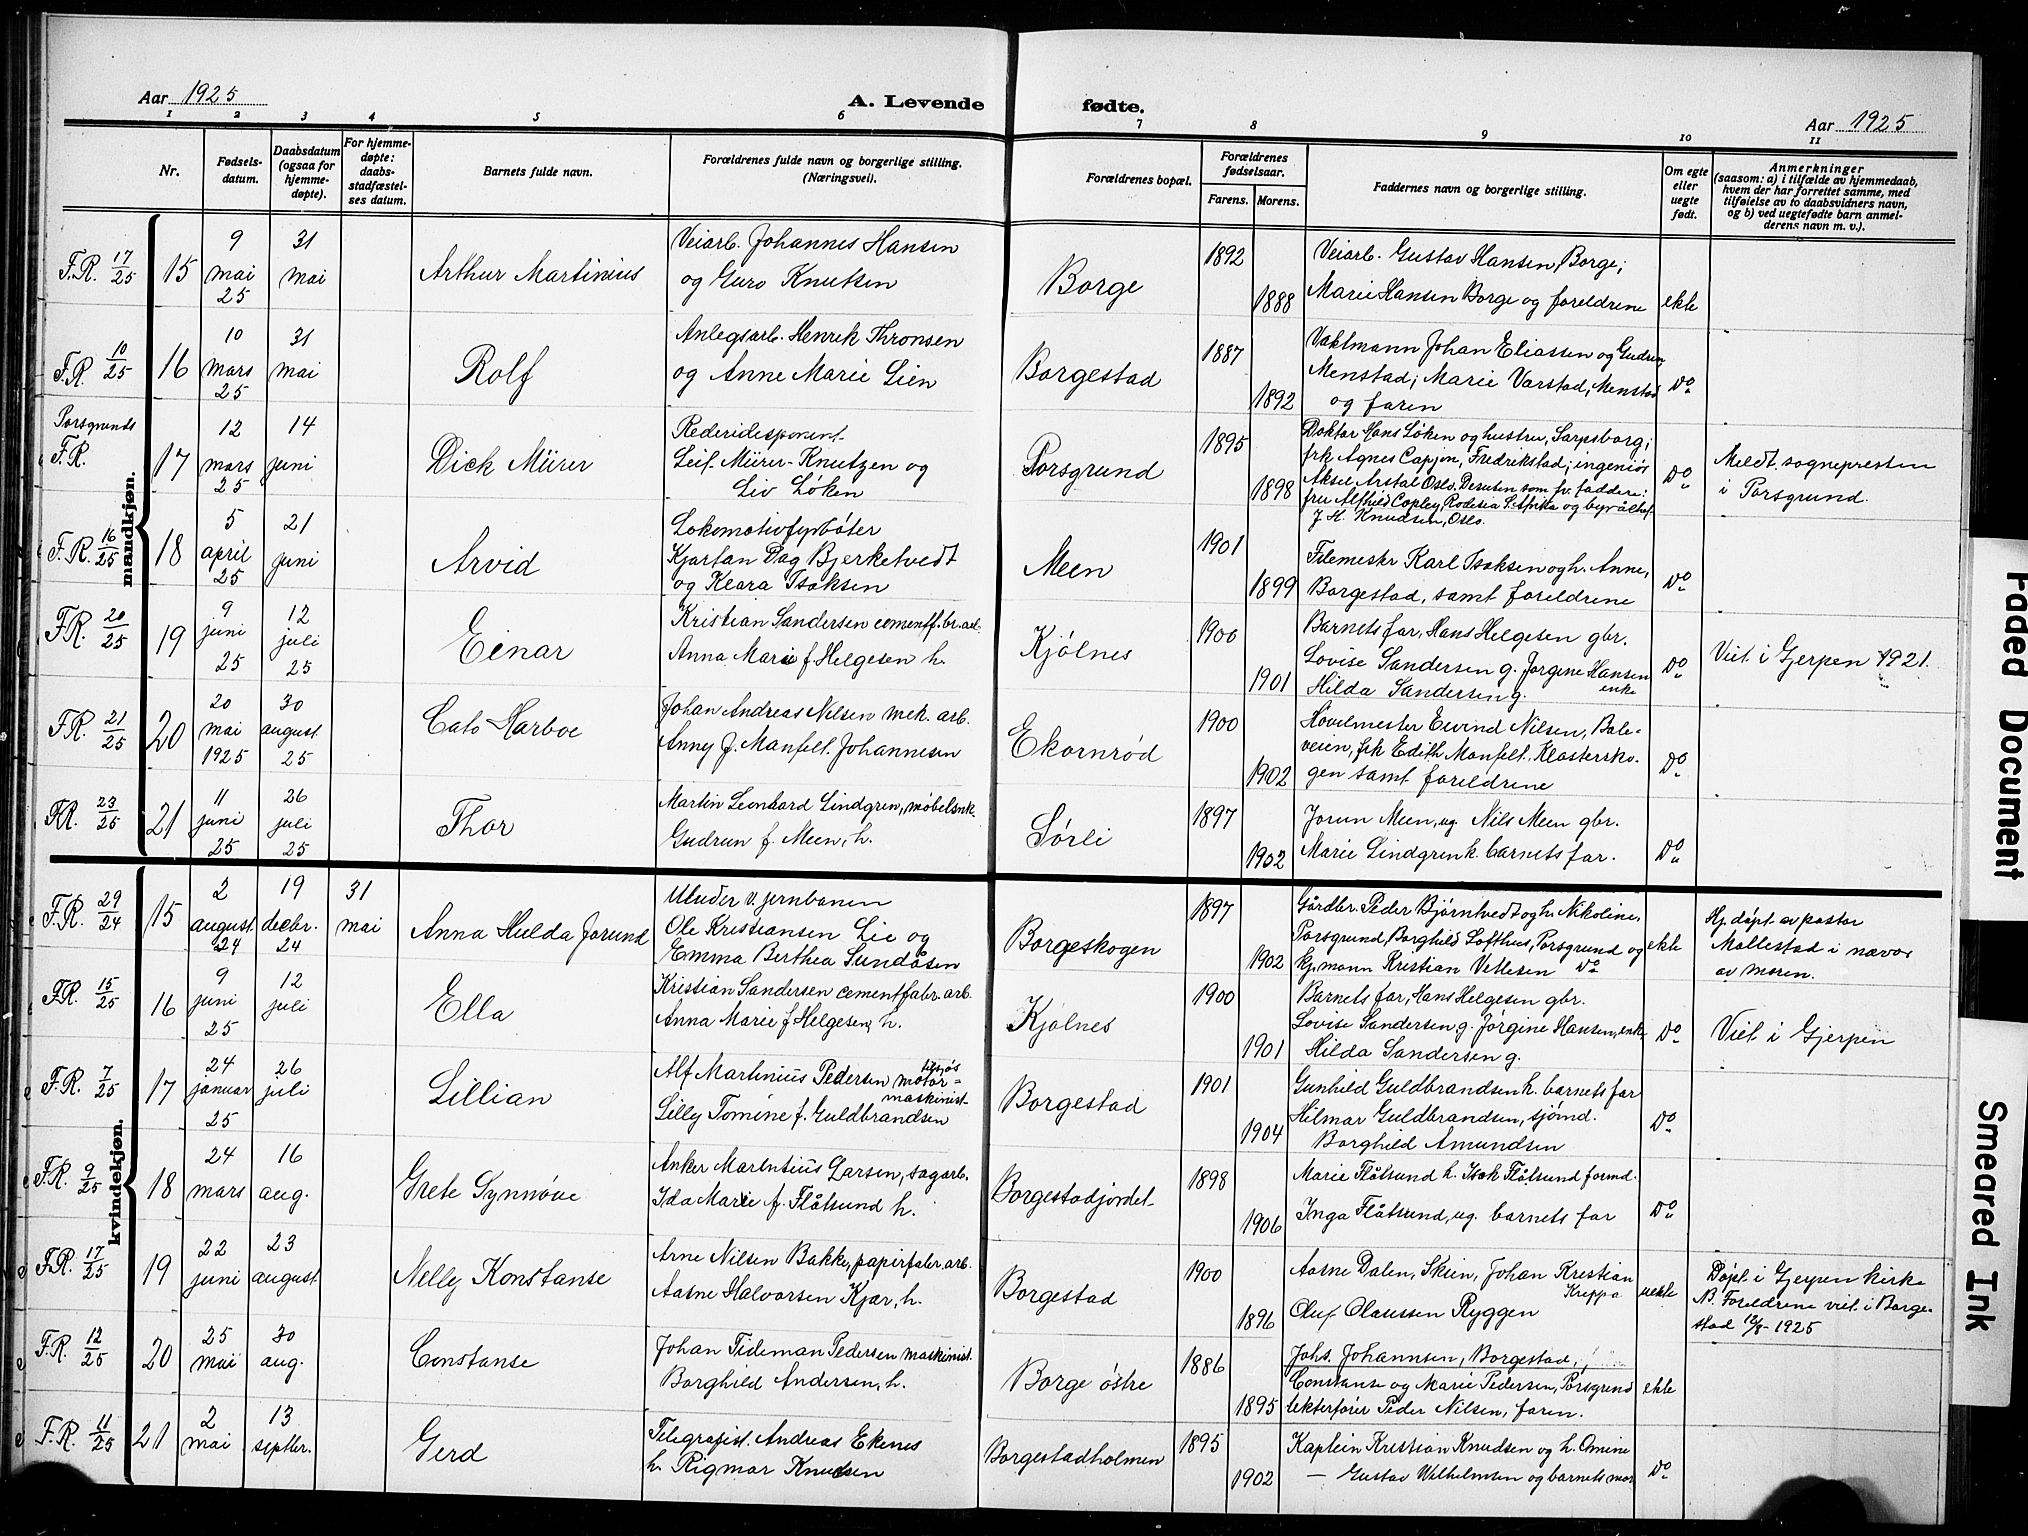 Aar 1925
A. Levende fødte.
Aar 1925
1 2 3 4 5 6 7 8 9 10 11
Nr.
Fødsels-
datum.
Daabsdatum
(ogsaa for
hjemme-
døpte).
For hjemme-
døpte:
daabs-
stadfæstel-
ses datum.
Barnets fulde navn.
Forældrenes fulde navn og borgerlige stilling.
(Næringsvei).
Forældrenes bopæl.
Forældrenes
fødselsaar.
Farens. Morens.
Faddernes navn og borgerlige stilling.
Om egte
eller
uegte
født.
Anmerkninger
(saasom: a) i tilfælde av hjemmedaab,
hvem der har forrettet samme, med
tilføielse av to daabsvidners navn,
og b) ved uegtefødte barn anmel-
derens navn m. v.).
mandkjøn.
F.R. 17/25 15
9
mai
25
31
mai
Arthur Martinius
Veiarb. Johannes Hansen
og Guro Knutsen
Borge
1892
1888
Veiarb. Gustav Hansen, Borge;
Marie Hansen Borge og foreldrene
ekte
F.R. 10/25 16
10
mars
25
31
mai
Rolf
Anlegsarb. Henrik Thronsen
og Anne Marie Lien
Borgestad
1887
1892
Vaktmann Johan Eliassen og Gudrun
Menstad; Marie Varstad, Menstad
og faren
Do
Porsgrunds
F.R. 17
12
mars
25
14
juni
Dick Mürer
Rederidisponent
Leif Mürer-Knutzen og
Liv Løken
Porsgrund
1895
1898
Doktor Hans Løken og hustru, Sarpsborg;
frk Agnes Capjon, Fredrikstad; ingeniør
Aksel Arstal Oslo. Desuten som fv. faddere:
fru Alfhild Copley, Rodesia S. Afrika og byråchef
J. H. Knudsen, Oslo.
Do
Meldt sognepresten
i Porsgrund.
F.R. 16/25 18
5
april
25
21
juni
Arvid
Lokomotivfyrbøter
Kjartan Dag Bjerketvedt
og Klara Isaksen
Meen
1901
1899
Filemestr Karl Isaksen og h. Anne,
Borgestad, samt foreldrene
Do
F.R. 20/25 19
9
juni
25
12
juli
25
Einar
Kristian Sandersen cementf.br.arb.
Anna Marie f Helgesen h.
Kjølnes
1900
1901
Barnets far, Hans Helgesen gbr.
Lovise Sandersen g. Jørgine Hansen
enke
Hilda Sandersen g.
Do
Viet i Gjerpen 1921.
F.R. 21/25 20
20
mai
1925
30
august
25
Cato Harboe
Johan Andreas Nilsen mek. arb.
Anny f. Manfelt Johannesen
Ekornrød
1900
1902
Høvelmester Eivind Nilsen, Bole-
veien, frk Edith Manfelt, Klostersko-
gen samt foreldrene
Do
F.R. 23/25 21
11
juni
25
26
juli
25
Thor
Martin Leonhard Lindgren, møbelsnk.
Gudrun f. Meen, h.
Sørli
1897
1902
Jorun Meen, ug. Nils Meen gbr.
Marie Lindgren h. barnets far.
Do
kvindekjøn.
F.R. 29/24 15
2
august
24
19
decbr.
24
31
mai
Anna Hulda Jorund
Utluder v. jernbanen
Ole Kristiansen Lie og
Emma Berthea Sundåsen
Borgeskogen
1897
1902
Gårdbr. Peder Bjørntvedt og h. Nikoline,
Porsgrund, Borghild Lofthus, Porsgrund og
kj.mann Kristian Vetlesen Do
ekte
Hj. døpt av pastor
Møllestad i nævær
av moren.
F.R. 15/25 16
9
juni
25
12
juli
Ella
Kristian Sandersen cementfabr. arb.
Anna Marie f Helgesen, h.
Kjølnes
1900
1901
Barnets far, Hans Helgesen gbr.
Lovise Sandersen, g. Jørgine Hansen, enke
Hilda Sandersen g.
Do
Viet i Gjerpen
F.R. 7/25 17
24
januar
25
26
juli
Lillian
Alf Martinius Pedersen tilsjøs
motor-
maskinist
Lilly Tomine f. Guldbrandsen
Borgestad
1901
1904
Gunhild Guldbrandsen h. barnets far
Hilmar Guldbrandsen, sjømd.
Borghild Amundsen
Do
F.R. 9/25 18
24
mars
16
aug.
Grete Synnøve
Anker Marentius Larsen, sagarb.
Ida Marie f. Flåtsund h.
Borgestadjordet
1898
1906
Marie Flåtsund h. Isak Flåtsund formd.
Inga Flåtsund, ug. barnets far
Do
F.R. 17/25 19
22
juni
23
august
Nelly Konstanse
Arne Nilsen Bakke, papirfabr. arb.
Aasne Halvorsen Kjær, h.
Borgestad
1900
1896
Aasne Dalen, Skien, Johan Kristian
Kreppa
Oluf Olaussen Ryggen
uekte
Døpt i Gjerpen kirke
N. Foreldrene viet i Borge-
stad 12/8-1925
F.R. 12/25 20
25
mai
30
aug.
Constanse
Johan Tideman Pedersen maskinist.
Borghild Andersen, h.
Borge østre
1886
1895
Johs. Johannsen, Borgestad,
Constanse og Marie Pedersen, Porsgrund
lekterfører Peder Nilsen, faren.
ekte
F.R. 11/25 21
2
mai
13
septbr.
Gerd
Telegrafist. Andreas Ekenes
h. Rigmor Knudsen
Borgestadholmen
1895
1902
Kaptein Kristian Knudsen og h. Omine
— Gustav Wilhelmsen og barnets mor
Do
Faded Document
Smeared Ink